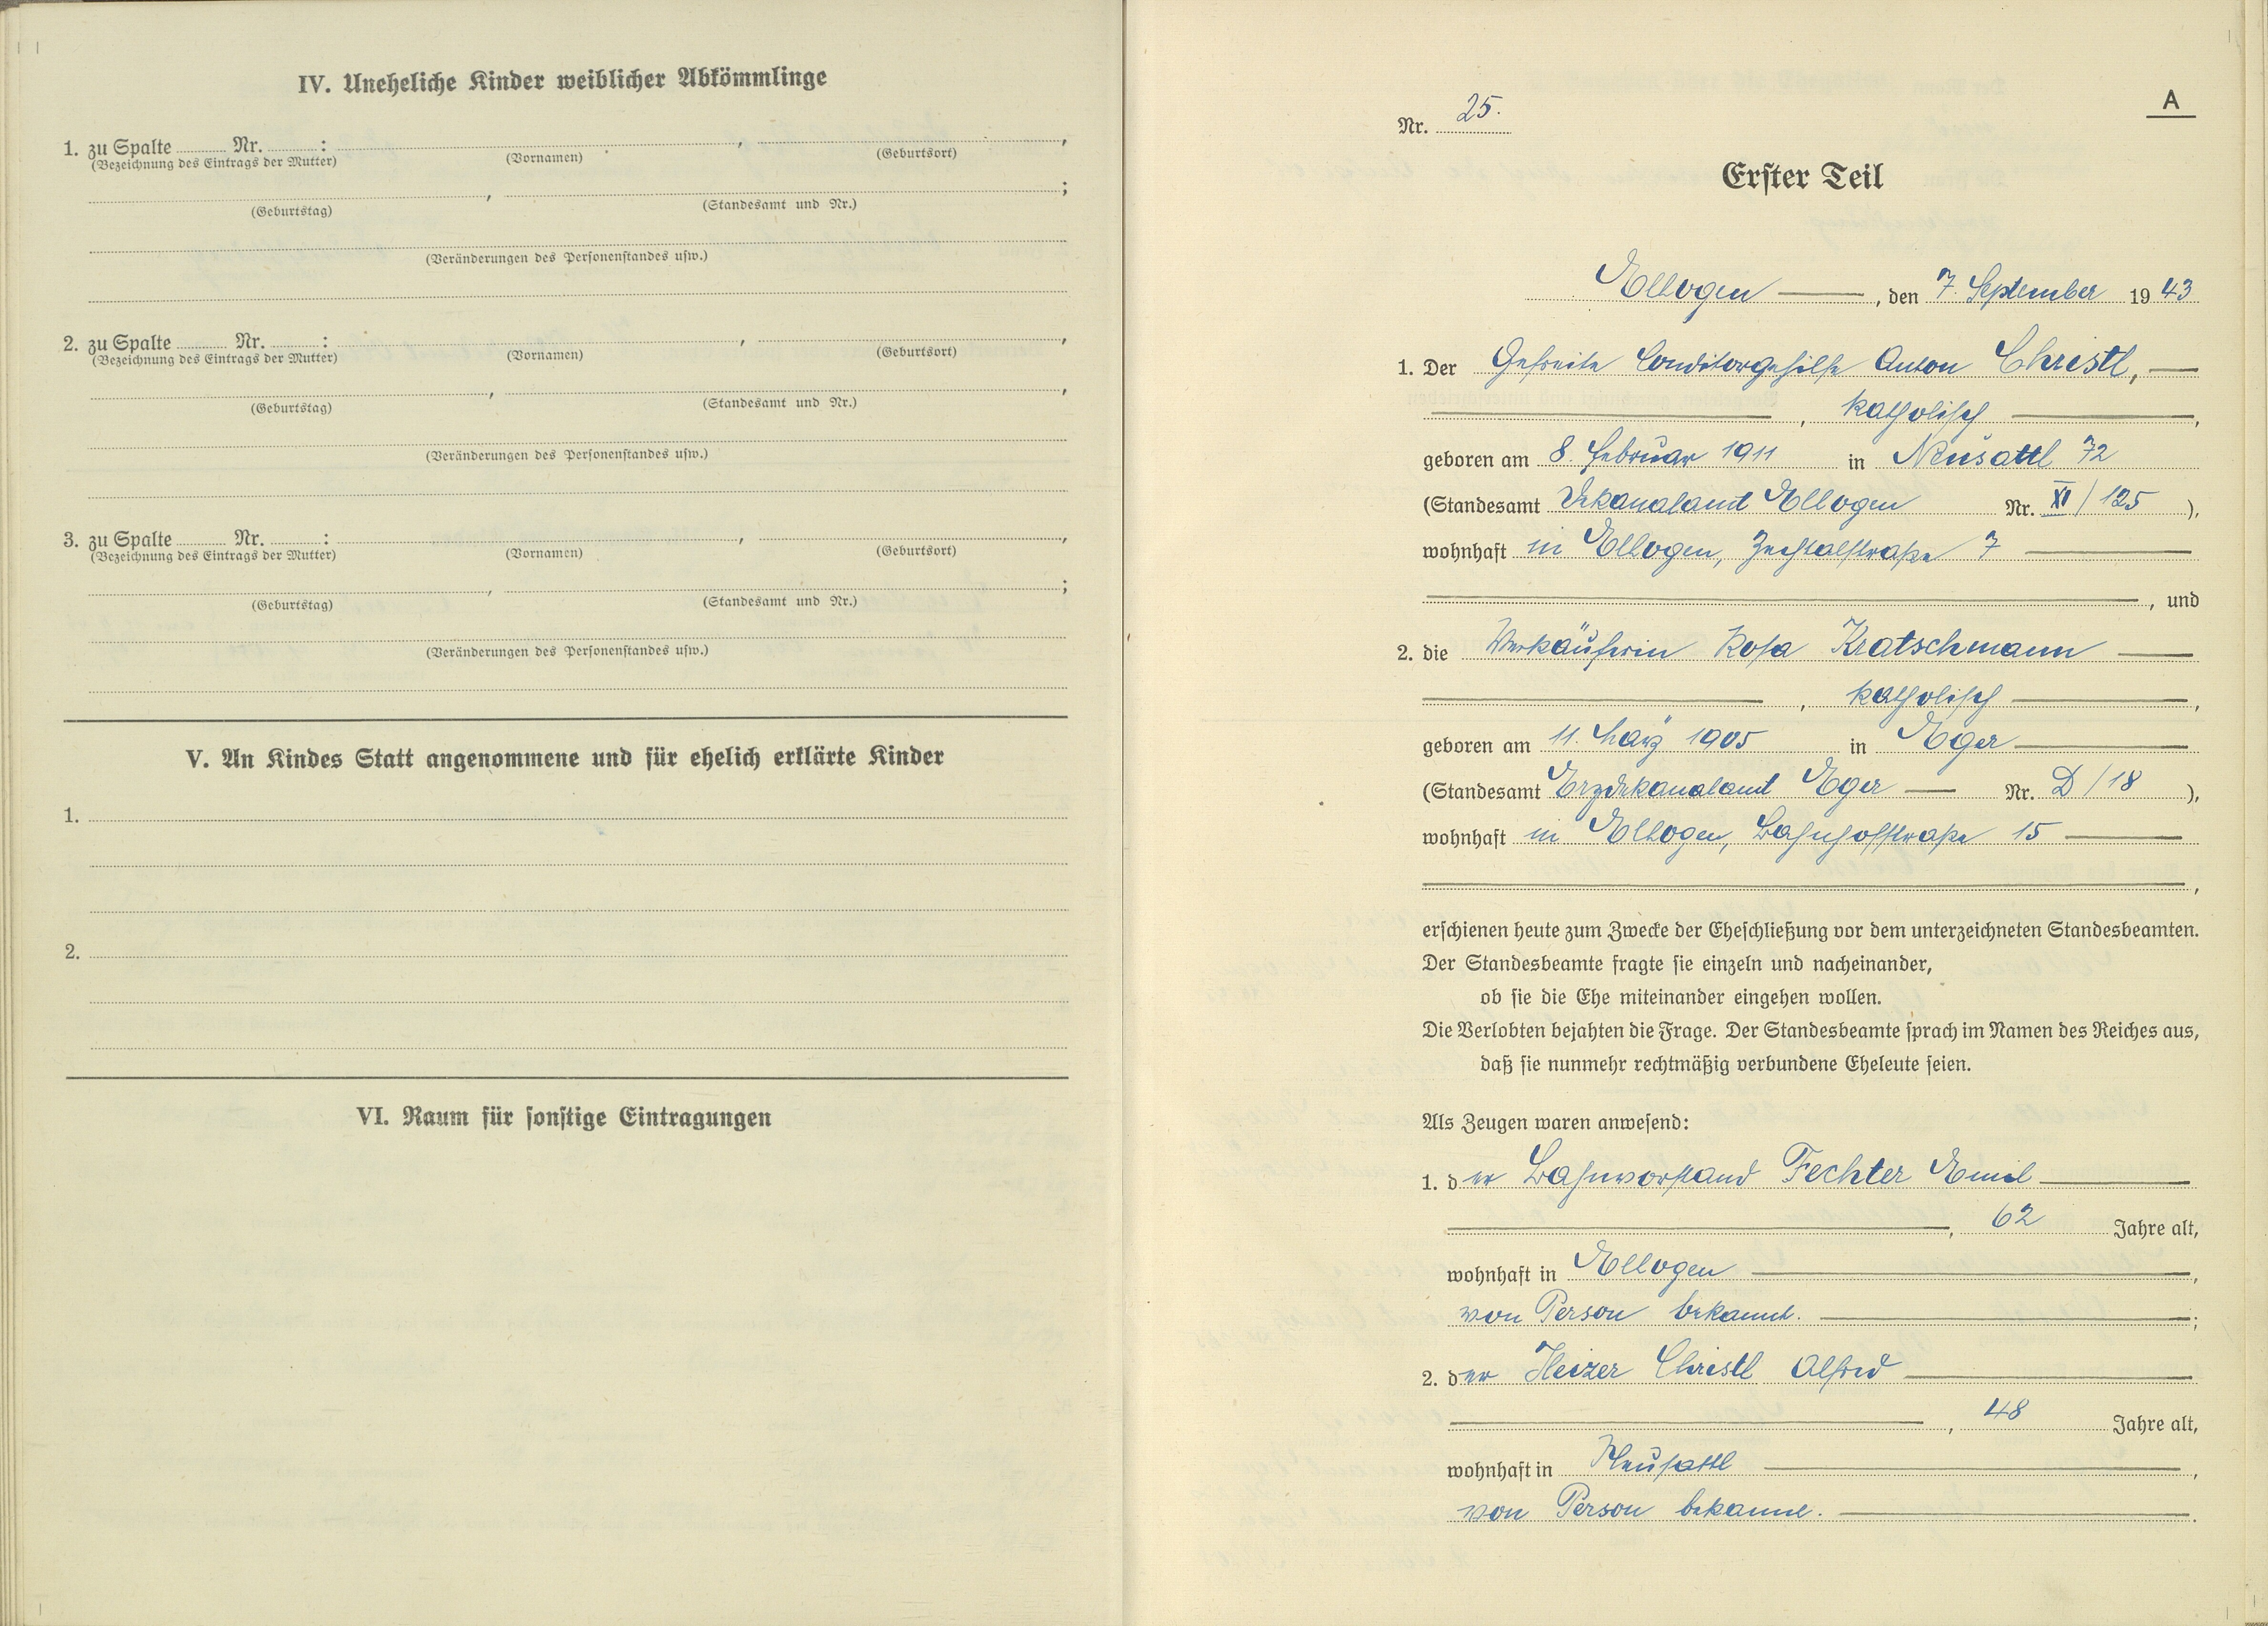 IV. Uneheliche Kinder weiblicher Abkömmlinge
1. zu Spalte ........ Nr. ........ : , ,
(Bezeichnung des Eintrags der Mutter) (Vornamen) (Geburtsort)
, ;
(Geburtstag) (Standesamt und Nr.)
(Veränderungen des Personenstandes usw.)
2. zu Spalte ........ Nr. ........ : , ,
(Bezeichnung des Eintrags der Mutter) (Vornamen) (Geburtsort)
, ,
(Geburtstag) (Standesamt und Nr.)
(Veränderungen des Personenstandes usw.)
3. zu Spalte ........ Nr. ........ : , ,
(Bezeichnung des Eintrags der Mutter) (Vornamen) (Geburtsort)
, ;
(Geburtstag) (Standesamt und Nr.)
(Veränderungen des Personenstandes usw.)
V. An Kindes Statt angenommene und für ehelich erklärte Kinder
1.
2.
VI. Raum für sonstige Eintragungen
A
Nr. 25.
Erster Teil
Ellbogen —, den 7. September 1943
1. Der Gefreite Conditorgehilfe Anton Christl, —
—, katholisch —,
geboren am 8. Februar 1911 in Neusattl 72
(Standesamt Dekanalamt Ellbogen Nr. XI / 125 ),
wohnhaft in Ellbogen, Zechtalstraße 7 —
—, und
2. die Verkäuferin Rosa Kratschmann —
—, katholisch —,
geboren am 11. März 1905 in Eger —
(Standesamt Erzdekanalamt Eger — Nr. D / 18 ),
wohnhaft in Ellbogen, Bahnhofstraße 15 —
—,
erschienen heute zum Zwecke der Eheschließung vor dem unterzeichneten Standesbeamten.
Der Standesbeamte fragte sie einzeln und nacheinander,
ob sie die Ehe miteinander eingehen wollen.
Die Verlobten bejahten die Frage. Der Standesbeamte sprach im Namen des Reiches aus,
daß sie nunmehr rechtmäßig verbundene Eheleute seien.
Als Zeugen waren anwesend:
1. der Bahnvorstand Fechter Emil —
—, 62 Jahre alt,
wohnhaft in Ellbogen —,
von Person bekannt. —;
2. der Heizer Christl Alfred —
—, 48 Jahre alt,
wohnhaft in Neusattl —,
von Person bekannt. —.